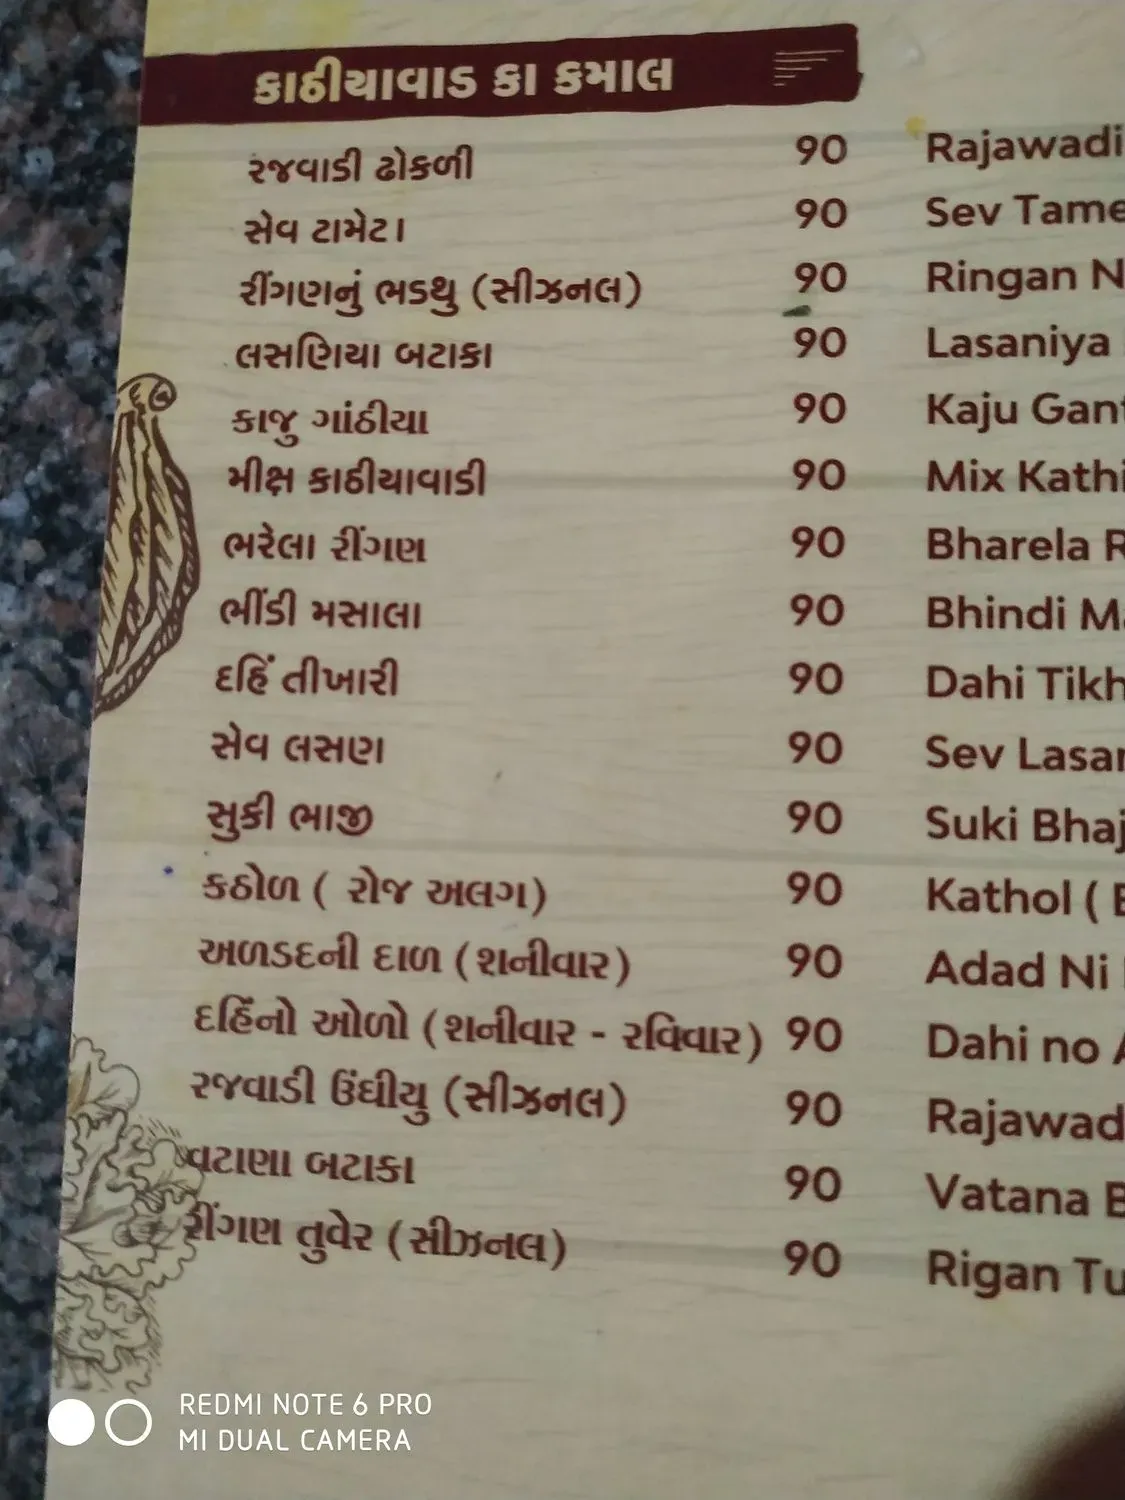 કાઠીયાવાડ કા કમાલ
રજવાડી ઢોકળી 90 Rajawadi
સેવ ટામેટા 90 Sev Tame
રીંગણનું ભડથુ (સીઝનલ) 90 Ringan N
લસણિયા બટાકા 90 Lasaniya
કાજુ ગાંઠીયા 90 Kaju Gant
મીક્ષ કાઠીયાવાડી 90 Mix Kathi
ભરેલા રીંગણ 90 Bharela R
ભીંડી મસાલા 90 Bhindi Ma
દહિં તીખારી 90 Dahi Tikh
સેવ લસણ 90 Sev Lasan
સુકી ભાજી 90 Suki Bhaj
કઠોળ ( રોજ અલગ) 90 Kathol ( E
અળડદની દાળ (શનીવાર) 90 Adad Ni
દહિંનો ઓળો (શનીવાર - રવિવાર) 90 Dahi no
રજવાડી ઉંધીયુ (સીઝનલ) 90 Rajawad
વટાણા બટાકા 90 Vatana B
રીંગણ તુવેર (સીઝનલ) 90 Rigan Tu
REDMI NOTE 6 PRO
MI DUAL CAMERA